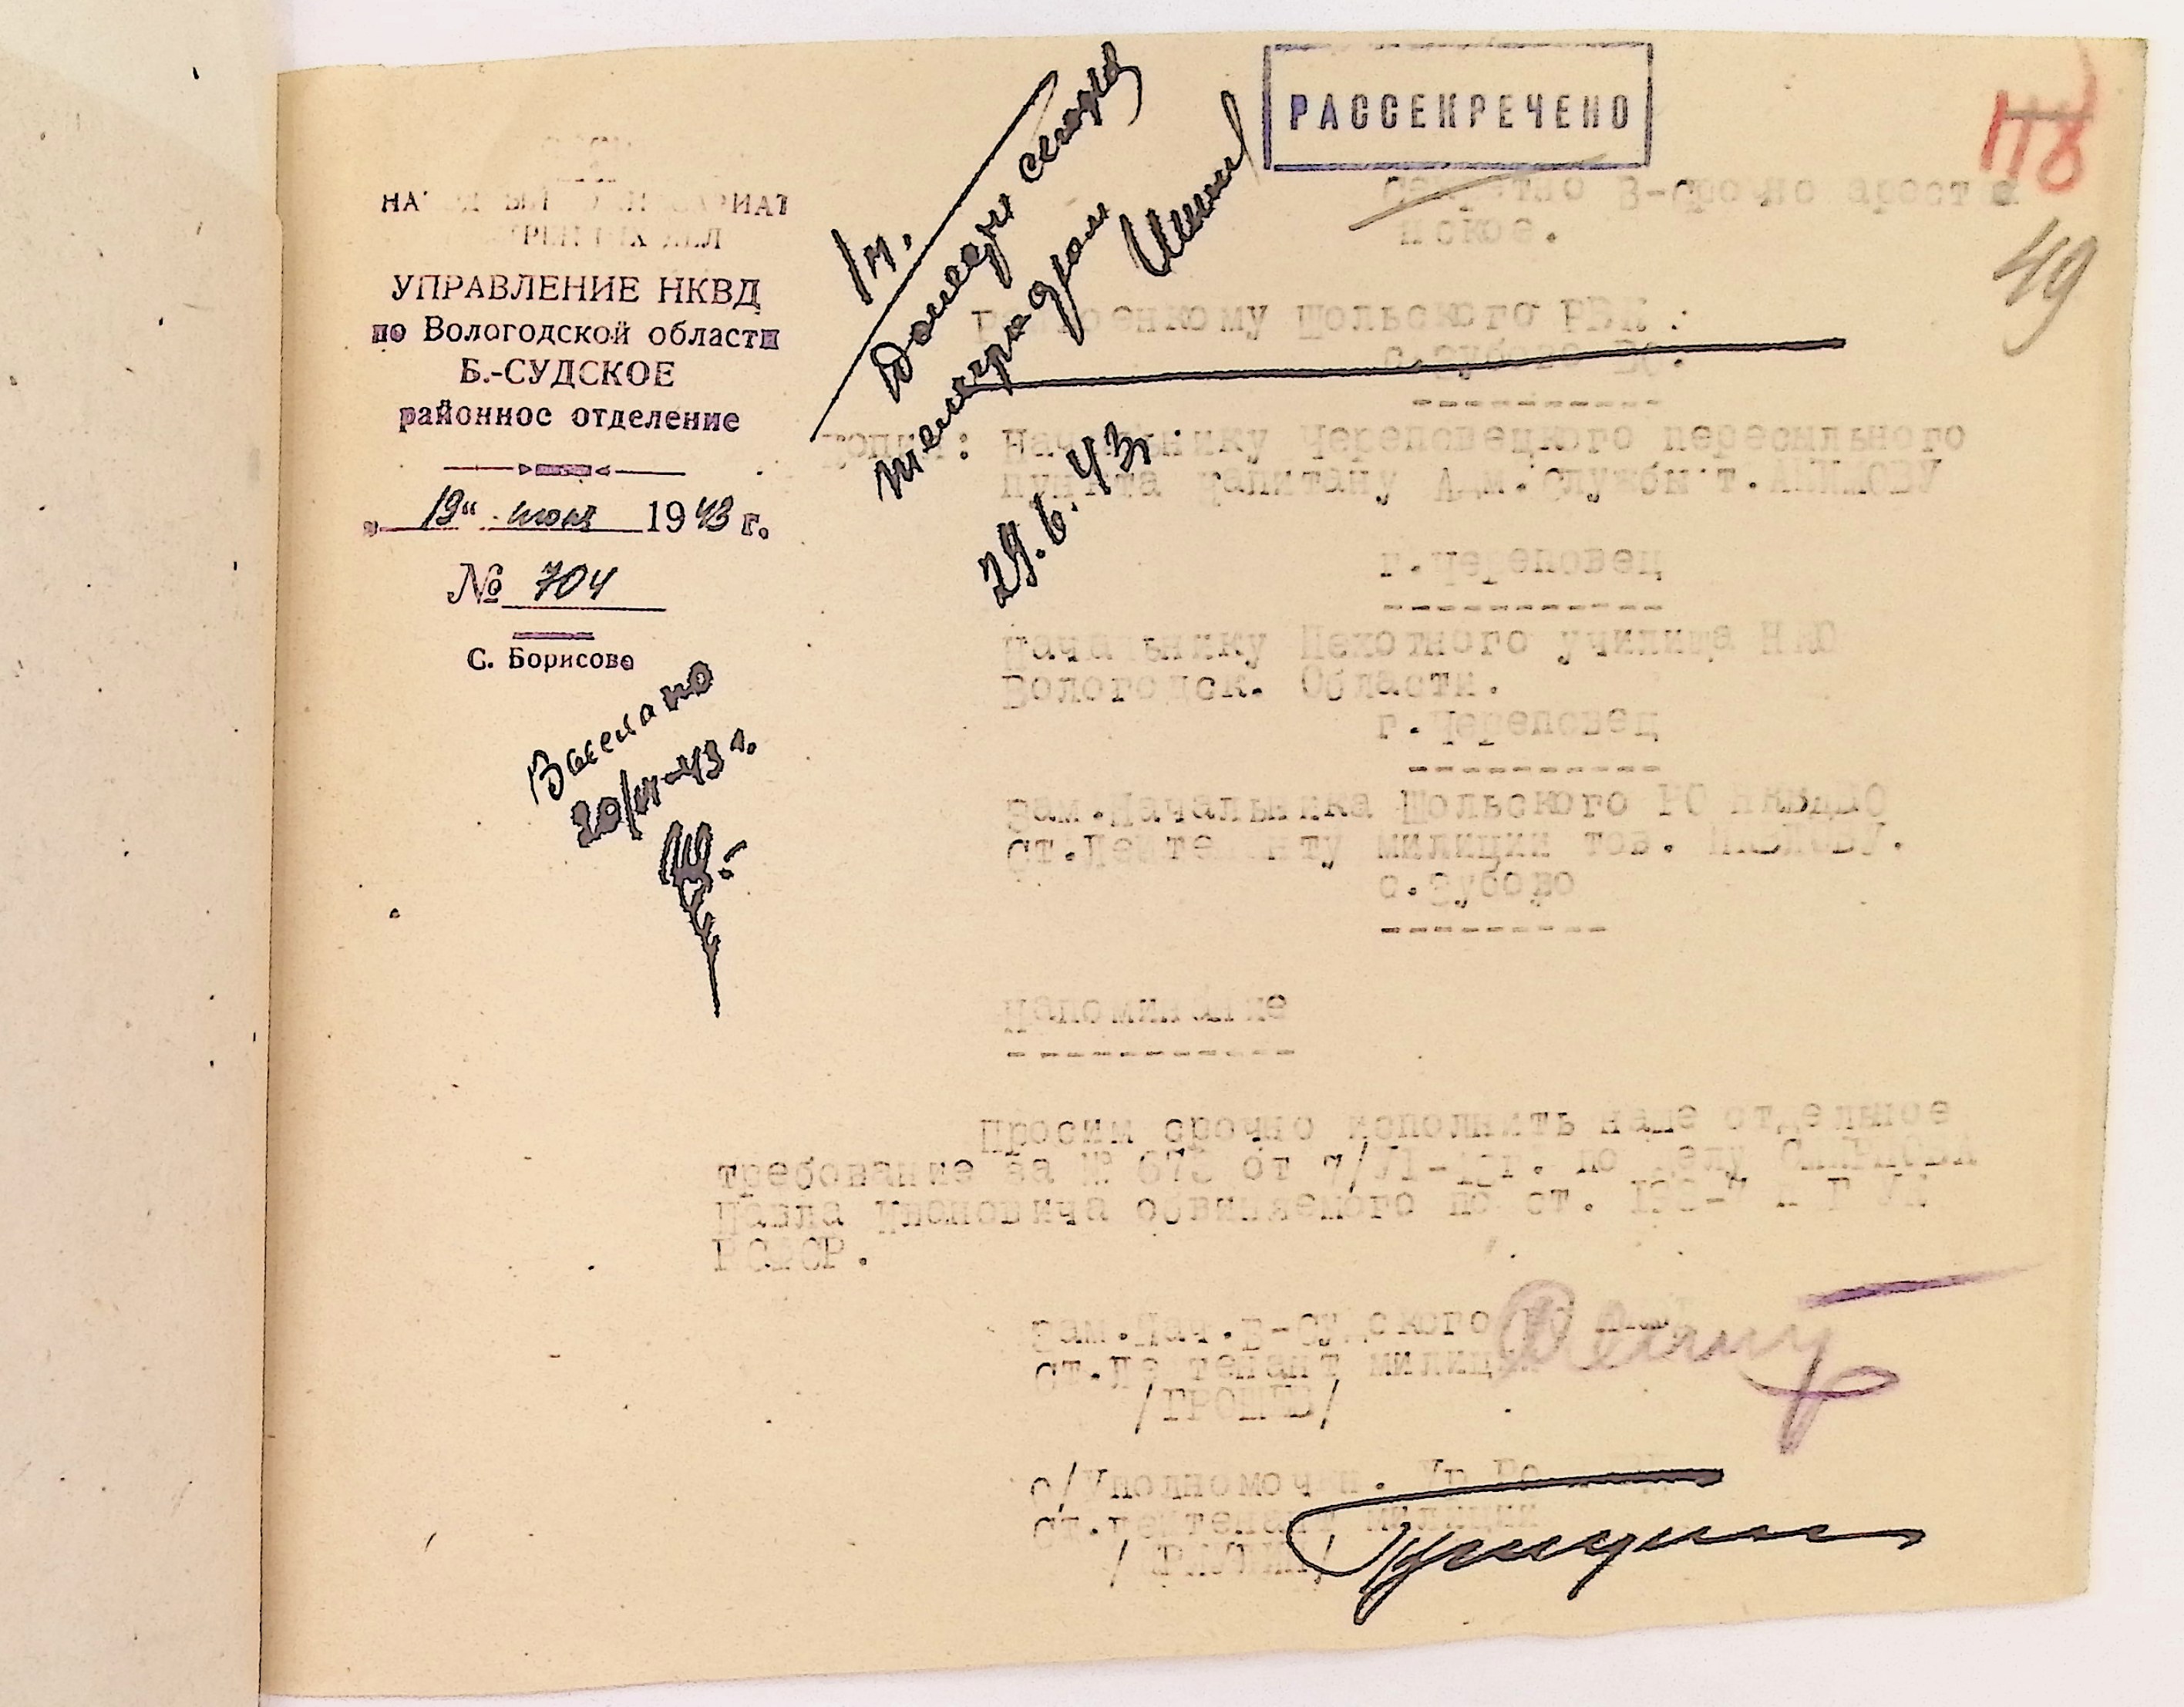 РАССЕКРЕЧЕНО
49
УПРАВЛЕНИЕ НКВД
по Вологодской области
Б.-СУДСКОЕ
районное отделение
„19“ июня 1943 г.
№ 704
С. Борисово
Выслано
20/VI-43 г.
29.6.43
Секретно В-срочно арест
нское.
Военкому Шольского РВК.
Копия: Начальнику Череповецкого пересыльного
пункта Капитану Адм.Службы т.
г.Череповец
Начальнику Пехотного училища НКО
Вологодск. Области.
г.Череповец
Зам.Начальника Шольского РО НКВД ВО
Ст.Лейтенанту милиции тов.
с.Зубово
Напоминание
Просим срочно исполнить наше отдельное
требование за № от 7/VI-43г. по делу
Павла обвиняемого по ст. УК
РСФСР.
Зам.Нач.Б-Судского
Ст.Лейтенант милиции
/ГРОШЕВ/
О/Уполномочен.
Ст.Лейтенант милиции